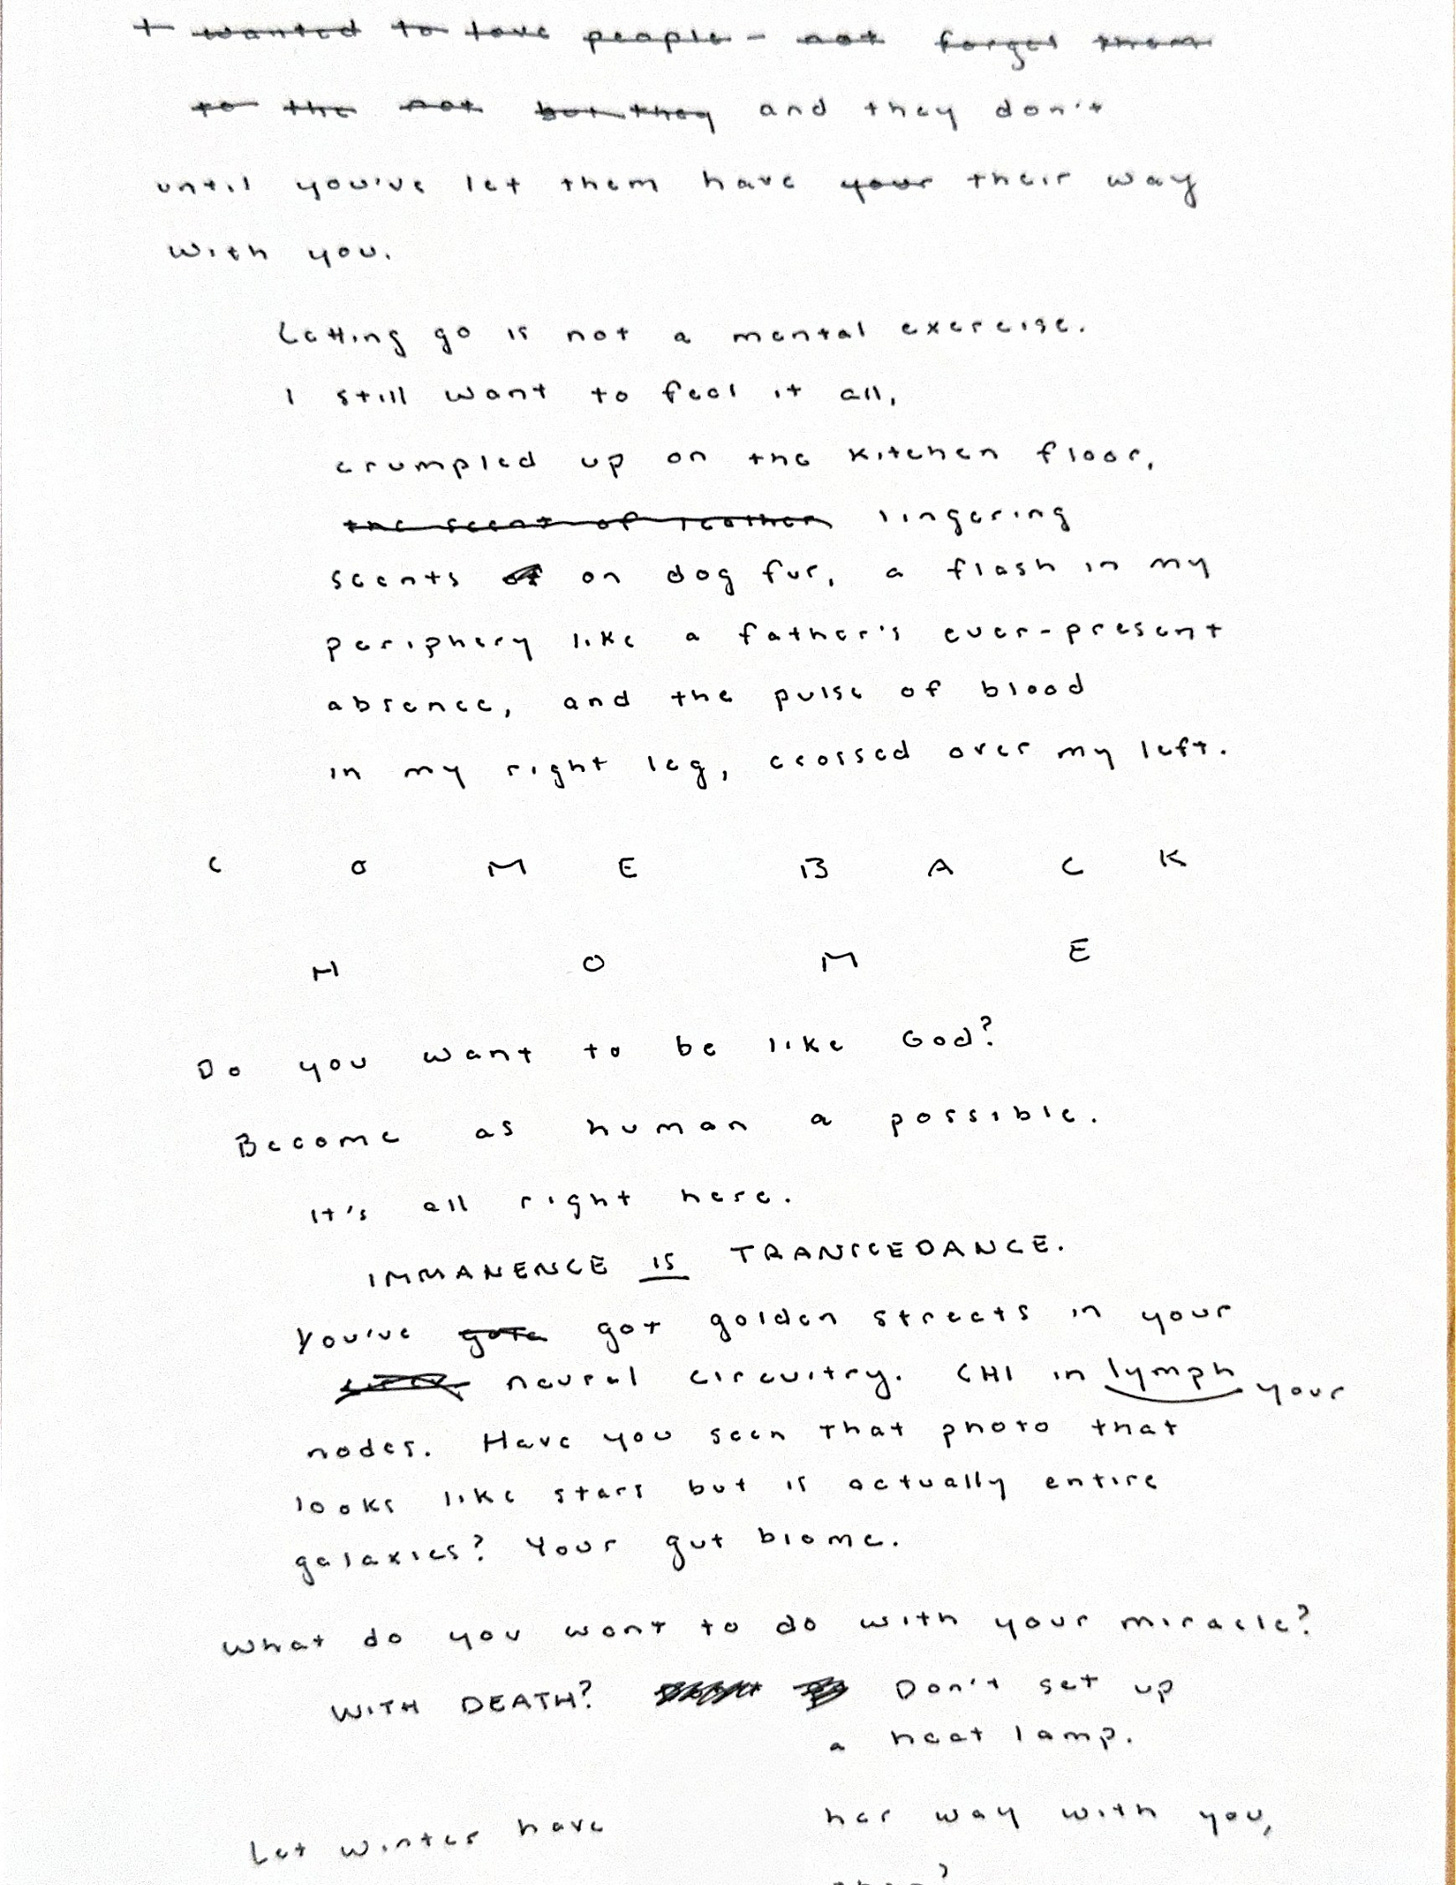 I wanted to love people - not forget them
to the not but they and they don't
until you've let them have your their way
with you.
Letting go is not a mental exercise.
I still want to feel it all,
crumpled up on the kitchen floor,
the scent of leather lingering
scents of on dog fur, a flash in my
periphery like a father's ever-present
absence, and the pulse of blood
in my right leg, crossed over my left.
C O M E B A C K
H O M E
Do you want to be like God?
Become as human a possible.
It's all right here.
IMMANENCE IS TRANSCEDANCE.
You've gota got golden streets in your
neural circuitry. CHI in lymph your
nodes. Have you seen that photo that
looks like stars but is actually entire
galaxies? Your gut biome.
What do you want to do with your miracle?
WITH DEATH? Don't set up
a heat lamp.
Let winter have her way with you,